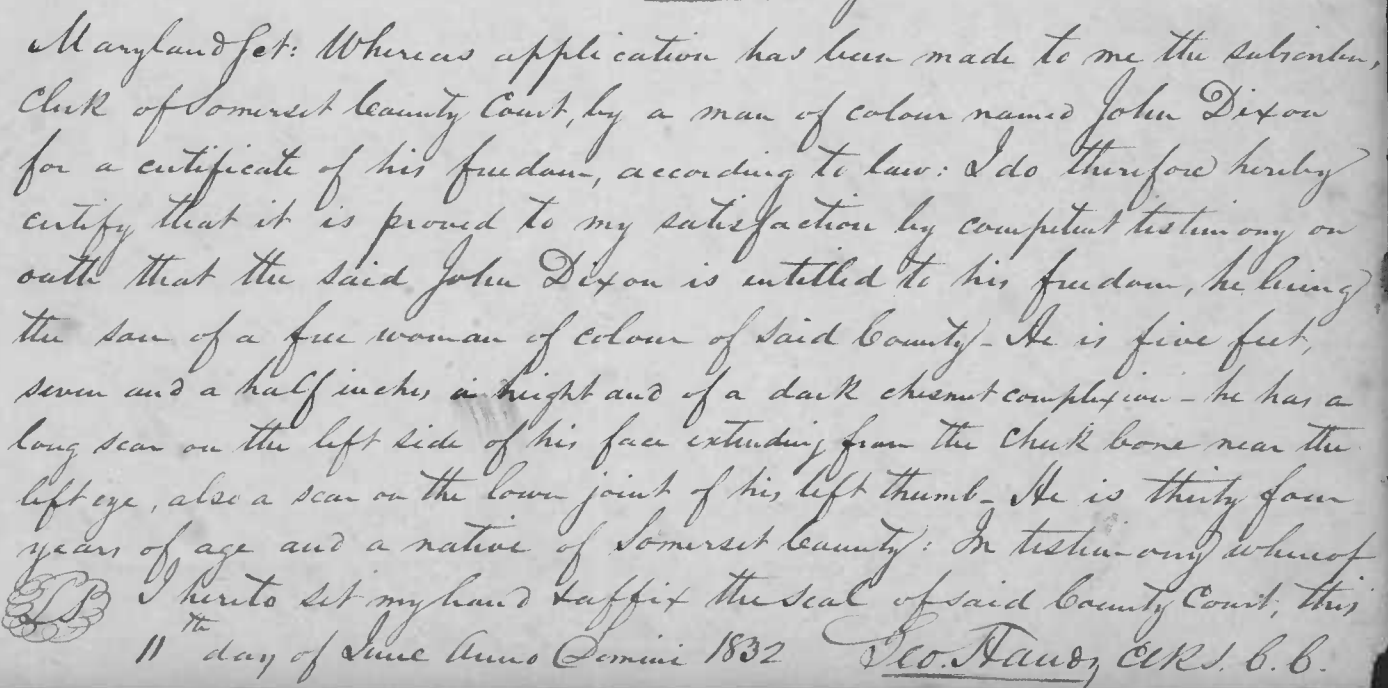 Maryland Sct: Whereas application has been made to me the subscriber,
Clerk of Somerset County Court, by a man of colour named John Dixon
for a certificate of his freedom, according to law: I do therefore hereby
certify that it is proved to my satisfaction by competent testimony on
oath that the said John Dixon is entitled to his freedom, he being
the son of a free woman of colour of said County - He is five feet,
seven and a half inches in height and of a dark chesnut complexion - he has a
long scar on the left side of his face extending from the cheek bone near the
left eye, also a scar on the lower joint of his left thumb - He is thirty four
years of age and a native of Somerset County: In testimony whereof
LS I hereto set my hand & affix the seal of said County Court, this
11th day of June Anno Domini 1832 Geo. Handy Clk S. C. C.